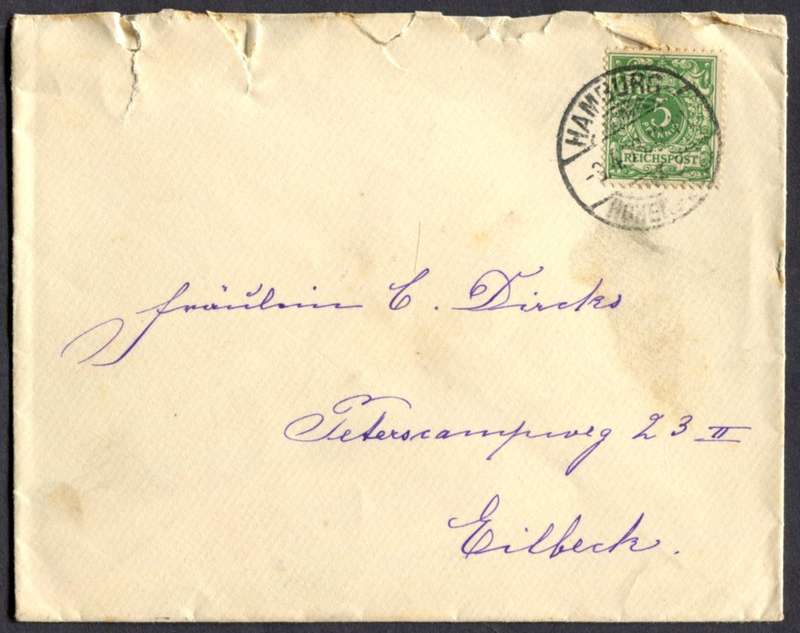 HAMBURG
5
PFENNIG
REICHSPOST
Fräulein C. Dircks
Peterscampweg 23 II
Eilbeck.